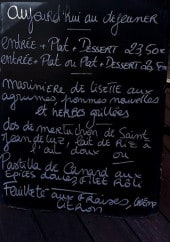 aujourd'hui au déjeuner
entrée + Plat + Dessert 23,50€
entrée + Plat ou Plat + Dessert
marinière de lisette aux
agrumes, pommes nouvelles
et herbes grillées
dos de merluchon de Saint
Jean de Luz, lait de Riz à
l'ail doux ou
Pastilla de Canard aux
Epices douces
Feuilleté aux fraises,
citron